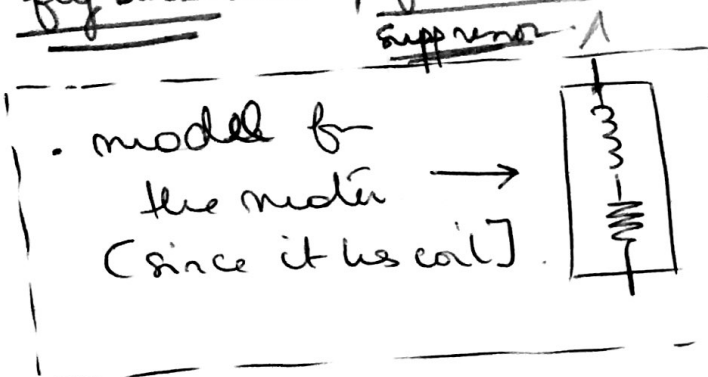 suppressor.
. model for
the motor
(since it has coil].